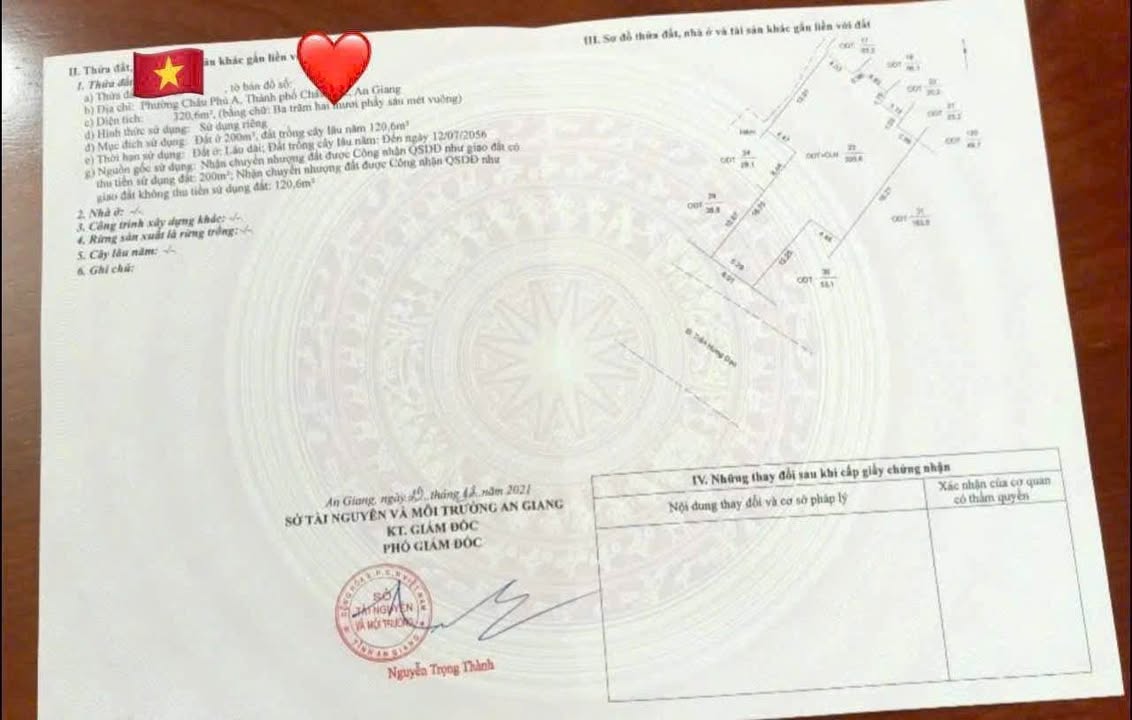 II. Thửa đất, ản khác gắn liền v
1. Thửa đất
a) Thửa đấ , tờ bản đồ số:
b) Địa chỉ: Phường Châu Phú A, Thành phố Châ , An Giang
c) Diện tích: 320,6m², (bằng chữ: Ba trăm hai mươi phẩy sáu mét vuông)
d) Hình thức sử dụng: Sử dụng riêng
đ) Mục đích sử dụng: Đất ở 200m², đất trồng cây lâu năm 120,6m²
e) Thời hạn sử dụng: Đất ở: Lâu dài; Đất trồng cây lâu năm: Đến ngày 12/07/2056
g) Nguồn gốc sử dụng: Nhận chuyển nhượng đất được Công nhận QSDĐ như giao đất có
thu tiền sử dụng đất: 200m²; Nhận chuyển nhượng đất được Công nhận QSDĐ như
giao đất không thu tiền sử dụng đất: 120,6m²
2. Nhà ở: -/-
3. Công trình xây dựng khác: -/-
4. Rừng sản xuất là rừng trồng: -/-
5. Cây lâu năm: -/-
6. Ghi chú:
An Giang, ngày 29 tháng 12 năm 2021
SỞ TÀI NGUYÊN VÀ MÔI TRƯỜNG AN GIANG
KT. GIÁM ĐỐC
PHÓ GIÁM ĐỐC
SỞ
TÀI NGUYÊN
VÀ MÔI TRƯỜNG
TỈNH AN GIANG
Nguyễn Trọng Thành
III. Sơ đồ thửa đất, nhà ở và tài sản khác gắn liền với đất
ODT
ODT
ODT
ODT
ODT
ODT
ODT+CLN
ODT
ODT
ODT
13.25
Đ. Trần Hưng Đạo
IV. Những thay đổi sau khi cấp giấy chứng nhận
Nội dung thay đổi và cơ sở pháp lý
Xác nhận của cơ quan
có thẩm quyền